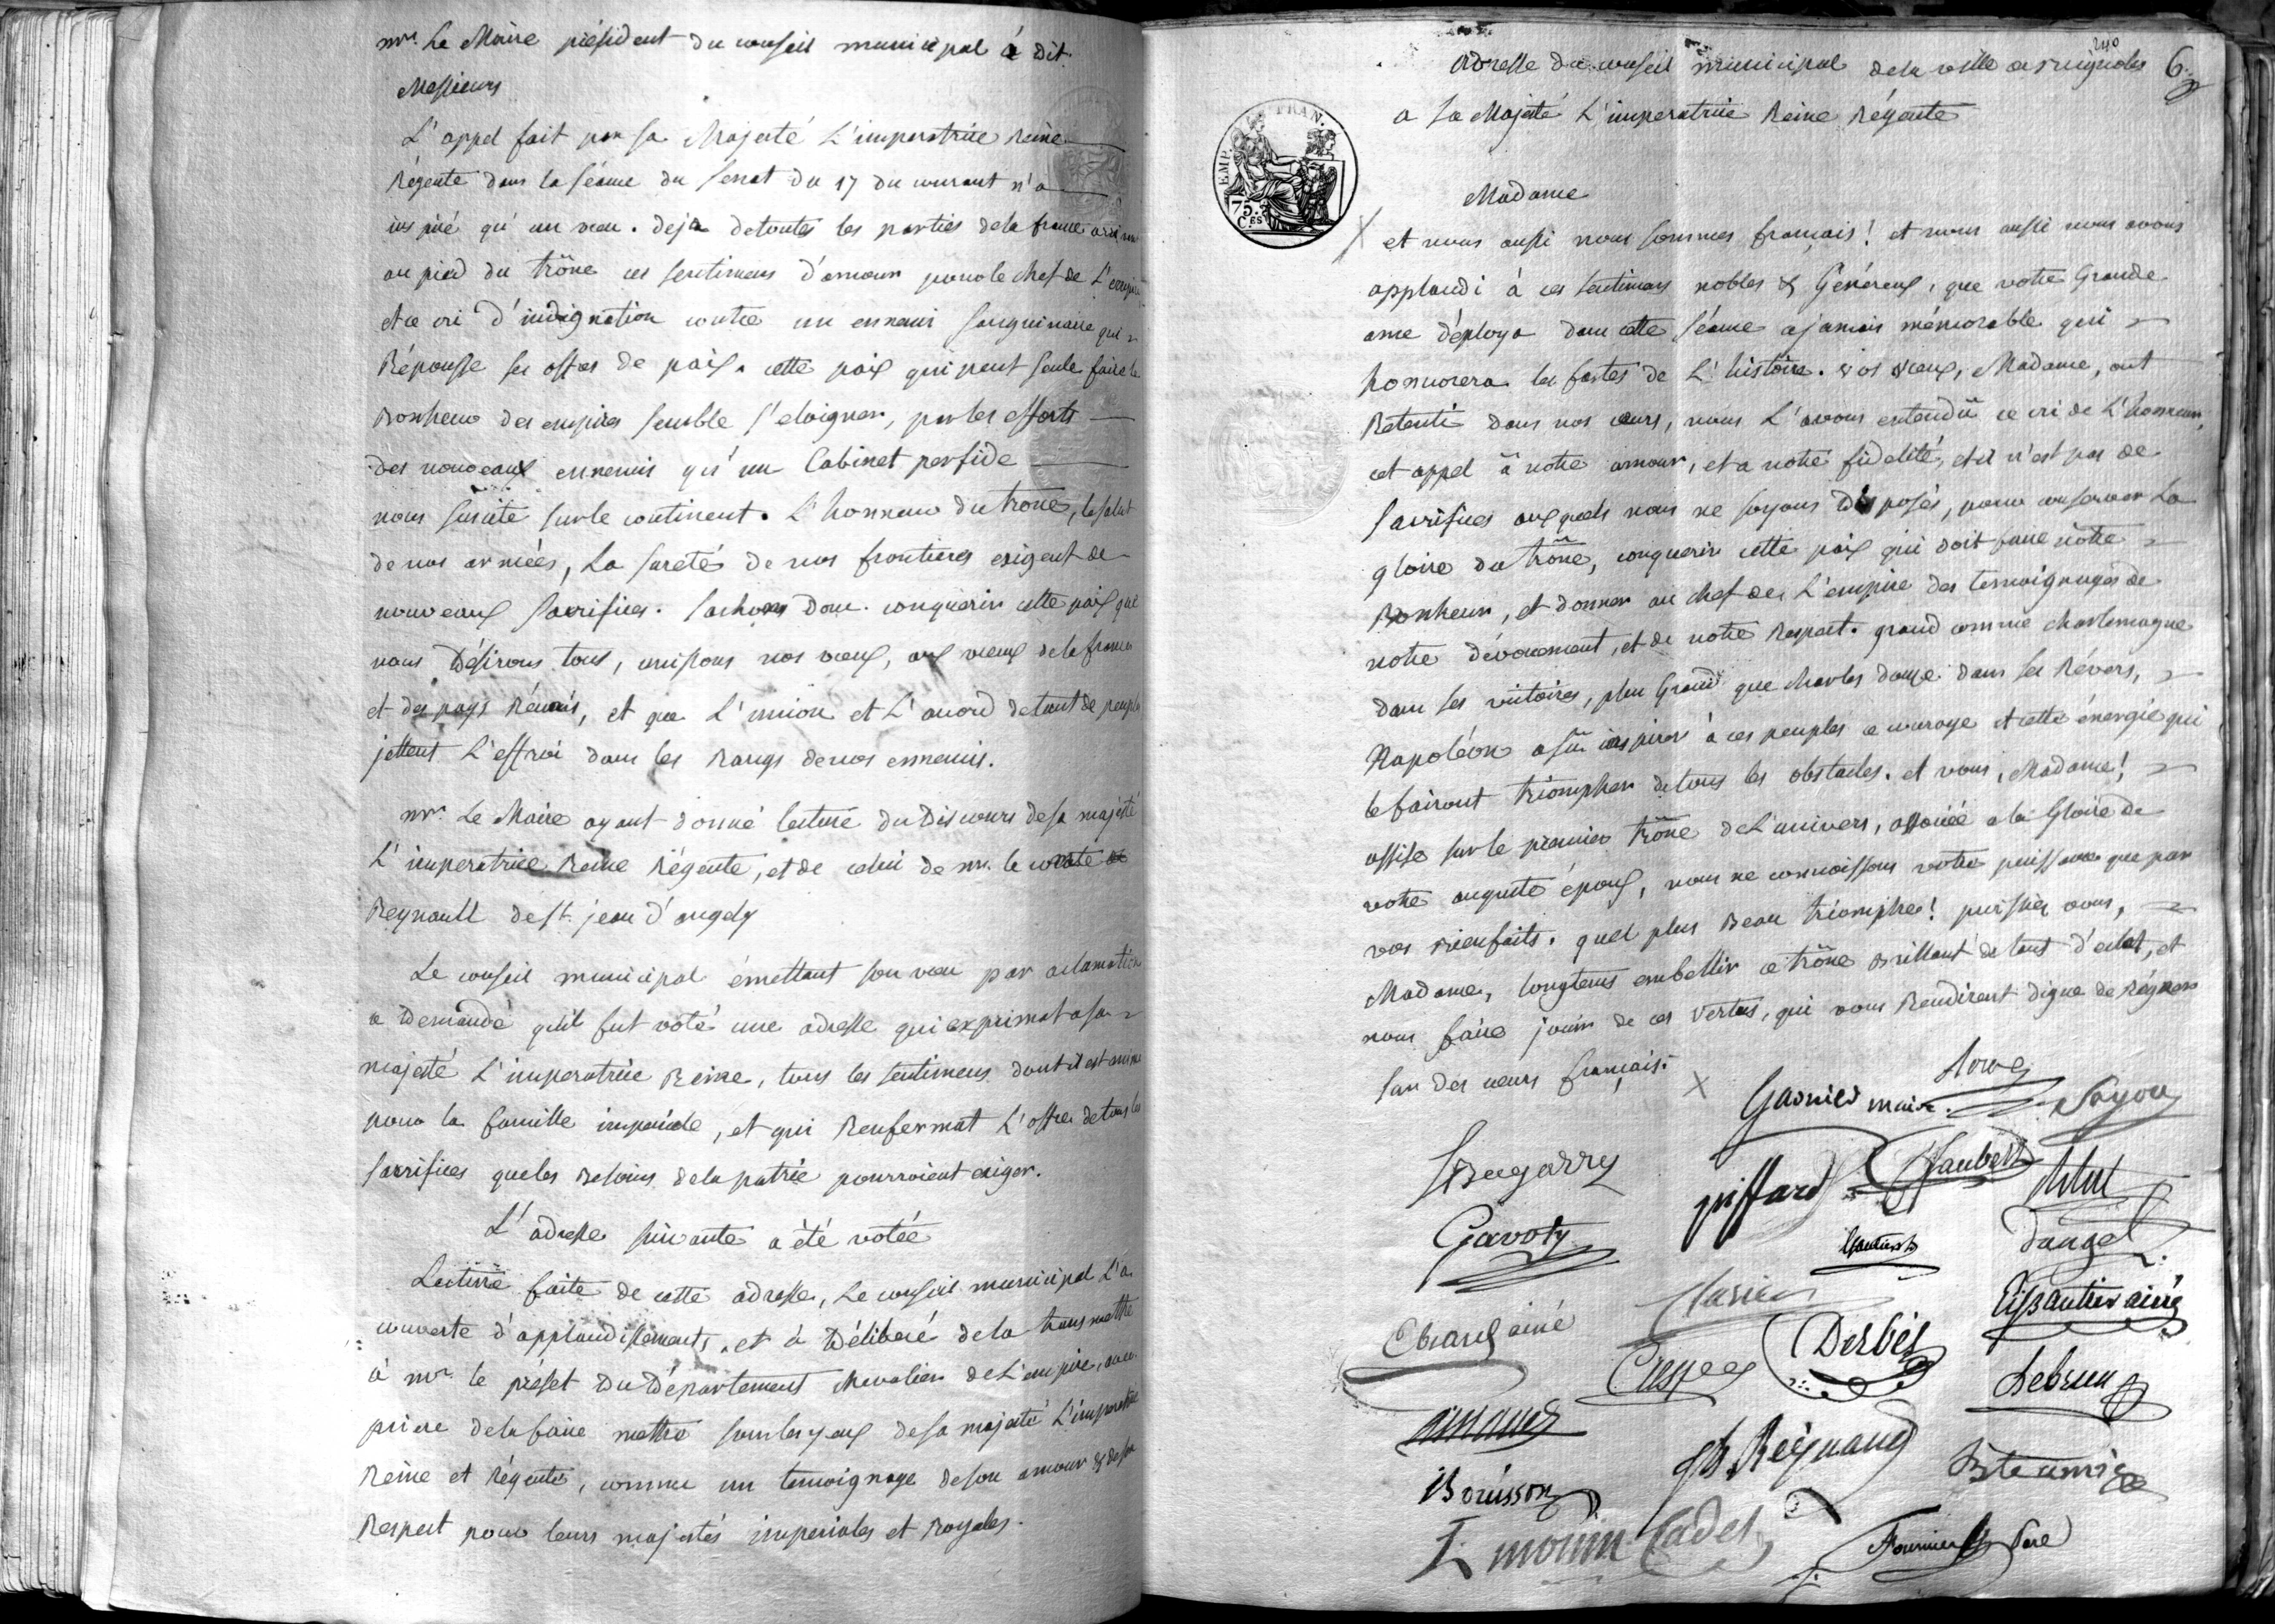 mr. Le Maire président du conseil municipal à dit.
Messieurs
L'appel fait par sa Majesté L'imperatrice Reine
Régente dans la séance du senat du 17 du courant n'a
inspiré qu'un vœu. deja de toutes les parties de la france
au pied du trône ces sentimens d'amour pour le chef de L'empire
et ce cri d'indignation contre un ennemi sanguinaire qui
Répousse ses offres de paix. cette paix qui peut seule faire le
Bonheur des empires semble s'eloigner, par les efforts
des nouveaux ennemis qu'un Cabinet perfide
nous suscite sur le continent. L'honneur du trône, le salut
de nos armées, La sureté de nos frontieres exigent de
nouveaux sacrifices. sachons donc conquerir cette paix que
nous Désirons tous, unissons nos vœux, aux vœux de la france
et des pays Réunis, et que L'union et L'acord de tant de peuples
jettent L'effroi dans les Rangs de nos ennemis.
mr. Le Maire ayant donné lecture du Discours de sa majesté
L'imperatrice Reine Régente, et de celui de mr. le comte
Regnault de st. jean d'angely
Le conseil municipal émettant son vœu par aclamation
a Demandé qu'il fut voté une adresse qui exprimat a sa
majesté L'imperatrice Reine, tous les sentimens dont il est animé
pour la famille impériale, et qui Renfermat L'offre de tous les
sacrifices que les Besoins de la patrie pourroient exiger.
L'adresse suivante a été votée
Lecture faite de cette adresse, Le conseil municipal L'a
couverte d'applaudissements, et à Déliberé de la transmettre
à mr. le préfet Du Département chevalier de L'empire, avec
priere de la faire mettre sous les yeux de sa majesté L'imperatrice
Reine et Régente, comme un temoignage de son amour & de son
Respect pour leurs majestés imperiales et Royales.
240
adresse du conseil municipal de la ville de Brignoles 6.
a sa Majesté L'imperatrice Reine Régente
EMP. FRAN.
75. CES
Madame
et nous aussi nous sommes français! et nous aussi nous avons
applaudi à ces sentimens nobles & Généreux, que votre Grande
ame déploya dans cette séance a jamais mémorable qui
honnorera les fastes de L'histoire. vos vœux, Madame, ont
Retenti dans nos cœurs, nous L'avons entendû ce cri de L'honneur,
cet appel à notre amour, et a notre fidelité, et il n'est pas de
sacrifices auxquels nous ne soyons Disposés, pour conserver La
gloire du trône, conquerir cette paix qui doit faire nôtre
Bonheur, et donner au chef de L'empire des temoignages de
notre dévouement, et de notre Respect. grand comme charlemagne
dans ses victoires, plus Grand que charles douze dans ses Révers,
Napoléon a sû inspirer à ces peuples ce courage et cette énergie qui
le fairont triompher de tous les obstacles. et vous, Madame!
assise sur le premier trône de L'univers, associée a la Gloire de
votre auguste époux, nous ne connoissons votre puissance que par
vos Bienfaits. quel plus Beau triomphe! puissiez vous,
Madame, longtems embellir ce trône Brillant de tant d'eclat, et
nous faire jouir de ces vertus, qui vous Rendirent digne de Régner
sur des cœurs français.
Garnier maire.
piffard
Jaubert
Gavoty
Dangel
Tissautier ainé
ainé
Derbès
Lebrun
Bouisson
Reignaud
morin Cadet
Fournier